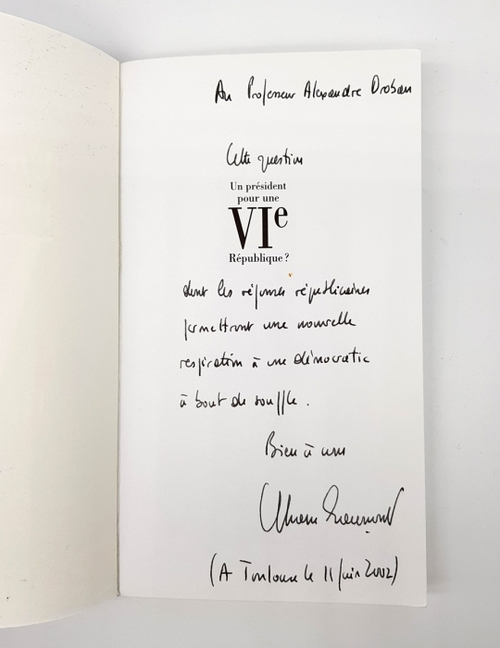 Au Professeur Alexandre Droban
Cette question
Un président
pour une
VIe
République ?
dont les réponses républicaines
permettront une nouvelle
respiration à une démocratie
à bout de souffle.
Bien à vous
(A Toulouse le 11 juin 2002)